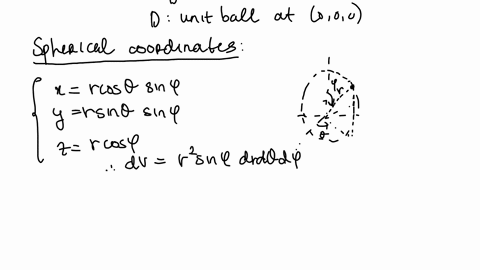 D: unit ball at (0,0,0)
Spherical coordinates:
x = rcosθ sinφ
y = rsinθ sinφ
z = rcosφ
∴ dv = r² sinφ drdθdφ
φ r
θ